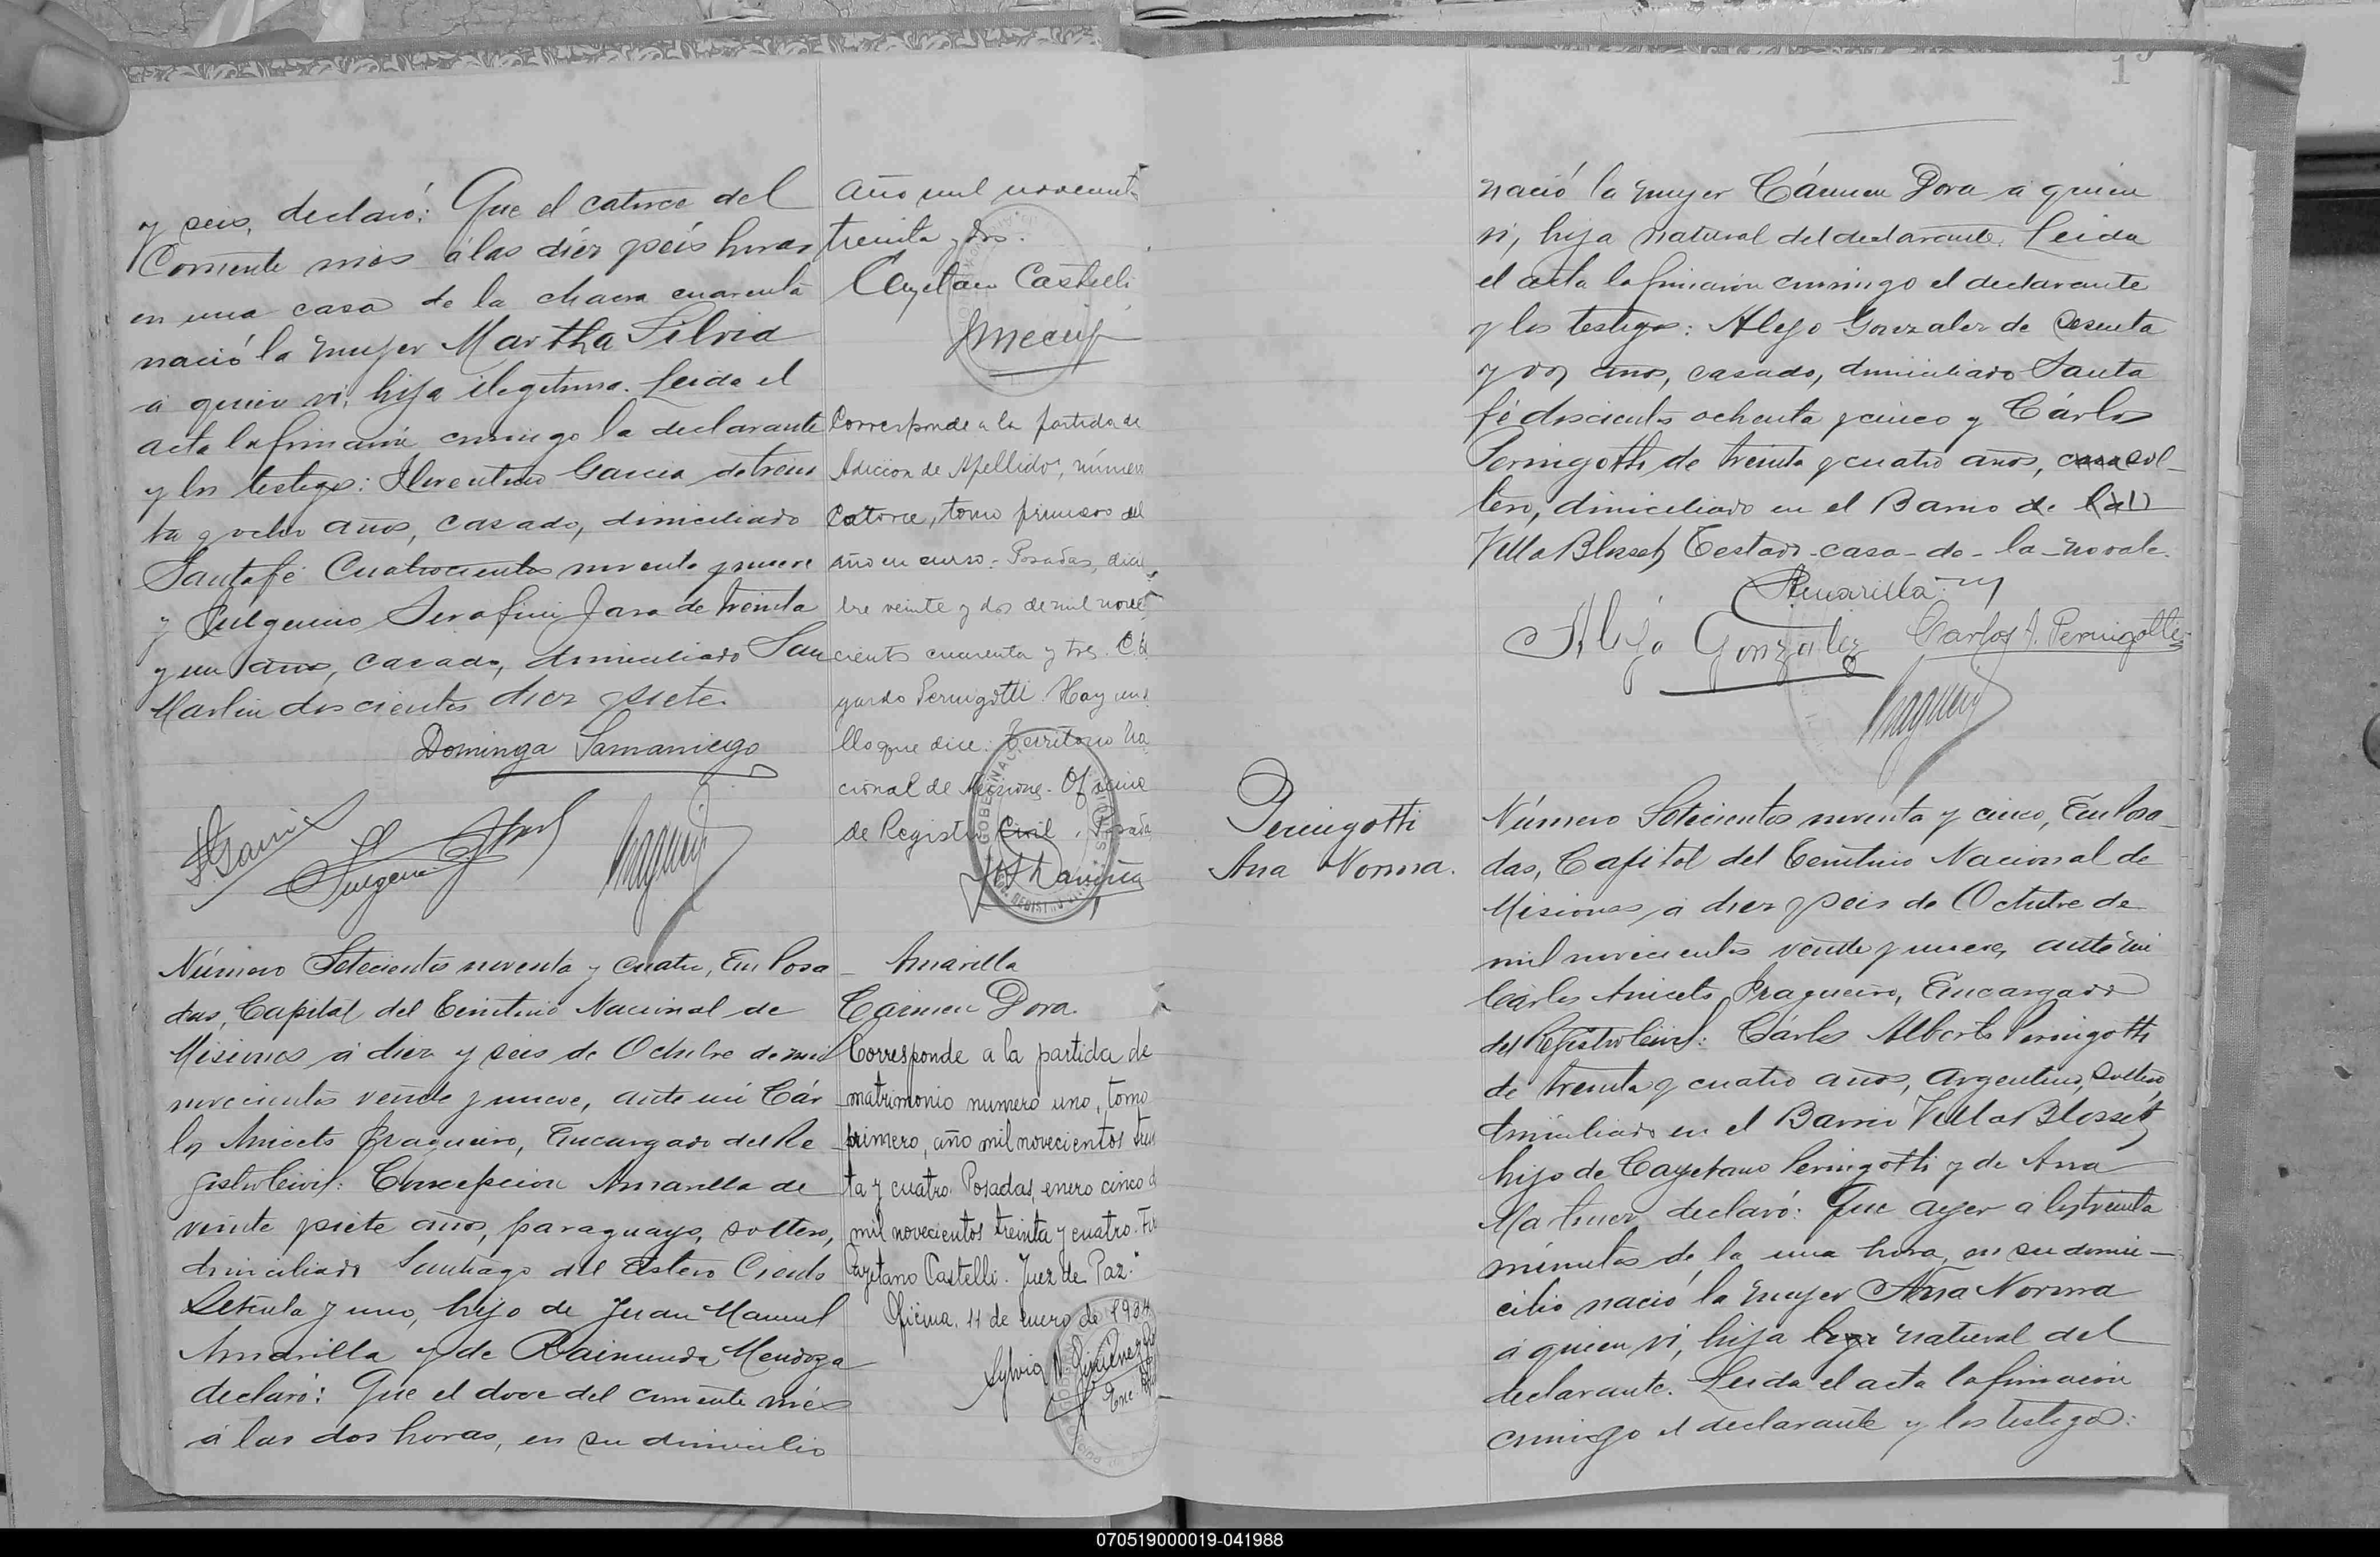 y seis, declaró: Que el catorce del
Corriente mes á las diez y seis horas
en una casa de la chacra cuarenta
nació la mujer Martha Silvia
á quien ví, hija ilegitima. Leida el
acta la firmaron conmigo la declarante
y los testigos: Florentino Garcia de trein
ta y ocho años, casado, domiciliado
Santa fé Cuatrocientos noventa y nueve
y Fulgencio Serafin Jara de treinta
y un años, casado, domiciliado San
Martin doscientos diez y siete.
Dominga Samaniego
F. Garcia
Número Setecientos noventa y cuatro, En Posa
das, Capital del Territorio Nacional de
Misiones á diez y seis de Octubre de mil
novecientos veinte y nueve, ante mí Cár
los Aniceto Fragueiro, Encargado del Re
gistro Civil: Concepcion Amarilla de
veinte y siete años, paraguayo, soltero,
domiciliado Santiago del Estero Ciento
Setenta y uno, hijo de Juan Manuel
Amarilla y de Raimunda Mendoza
declaró: Que el doce del corriente més
á las dos horas, en su domicilio
año mil novecientos
treinta y dos.
Cayetano Castelli
Corresponde a la partida de
Adicion de Apellido, número
Catorce, tomo primero del
año en curso - Posadas, diciem
bre veinte y dos de mil nove
cientos cuarenta y tres.
gardo Peringotti. Hay un s
llo que dice: Territorio Na
cional de Misiones. Oficina
de Registro Civil. Posadas
Amarilla
Cármen Dora.
Corresponde a la partida de
matrimonio numero uno, tomo
primero, año mil novecientos trein
ta y cuatro. Posadas, enero cinco d
mil novecientos treinta y cuatro. Fir
Cayetano Castelli. Juez de Paz."
Oficina, 11 de enero de 1934
nació la mujer Cármen Dora á quien
ví, hija natural del declarante. Leida
el acta la firmaron conmigo el declarante
y los testigos: Alejo Gonzalez de sesenta
y dos años, casado, domiciliado Santa
fé doscientos ochenta y cinco y Cárlos
Peringotti de treinta y cuatro años, casa sol-
tero, domiciliado en el Barrio de la
Villa Blosset, Testado - casa - de - la - no vale.
C Amarilla
Alejo González Carlos A. Peringotti
Peringotti
Ana Norma.
Número Setecientos noventa y cinco, En Posa-
das, Capital del Territorio Nacional de
Misiones á diez y seis de Octubre de
mil novecientos veinte y nueve, ante mí
Cárlos Aniceto Fragueiro, Encargado
del Registro Civil: Cárlos Alberto Peringotti
de treinta y cuatro años, argentino, soltero,
domiciliado en el Barrio Villa Blosset,
hijo de Cayetano Peringotti y de Ana
Martinez declaró: Que ayer á los treinta
minutos de la una hora, en su domi-
cilio nació la mujer Ana Norma
á quien ví, hija natural del
declarante. Leida el acta la firmaron
conmigo el declarante y los testigos:
070519000019-041988